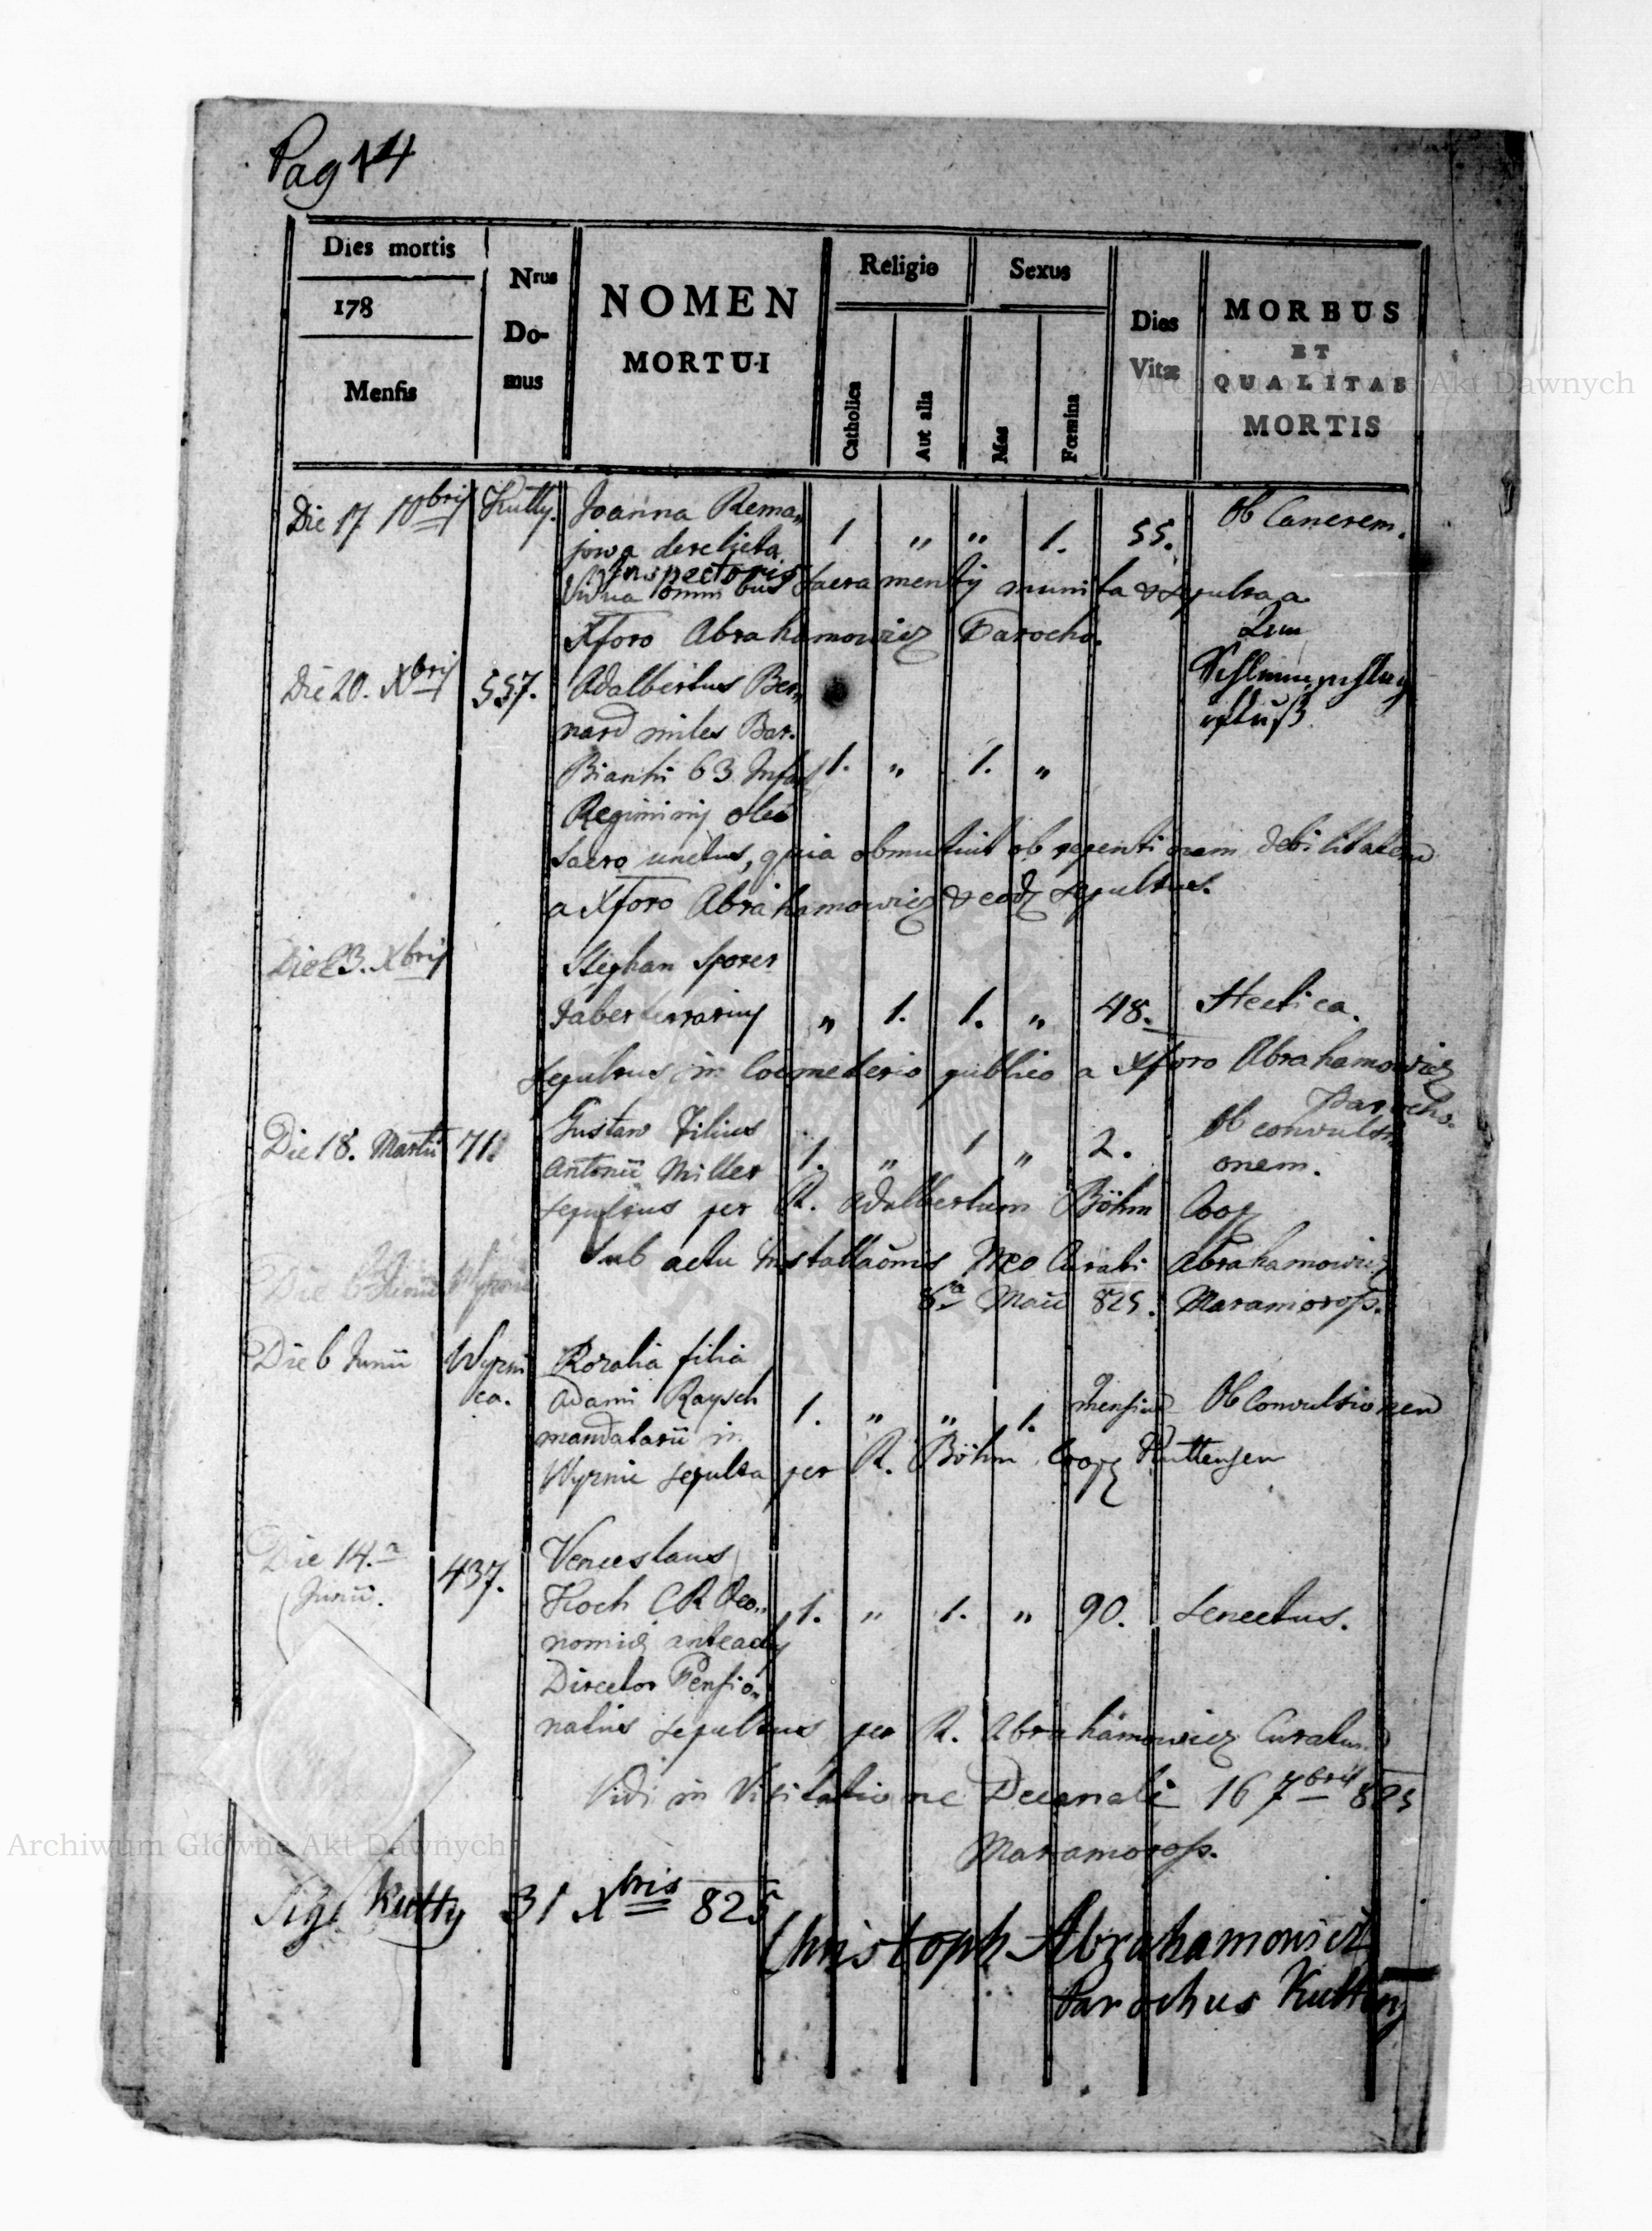 Pag 14
Dies mortis
178
Mensis
Nrus
Do-
mus
NOMEN
MORTUI
Religio
Catholica
Aut alia
Sexus
Mas
Fœmina
Dies
Vitæ
MORBUS
ET
QUALITAS
MORTIS
Archiwum Główne Akt Dawnych
Die 17 10bris Kutty. Joanna Rema„ 1 „ „ 1. 55. Ob Cancrem.
jowa derelicta
Inspectoris
Vidua omnibus Sacramentis munita & sepulta a
Xforo Abrahamowicz Parocho.
Die 20. Xbris 557. Adalbertus Ber„
nard miles Bar.
Bianhi 63 Infan 1. „ 1. „
Regiminis oleo
Sacro unctus, quia obmutuit ob repentinam debilitatem
a Xforo Abrahamowicz & eodz sepultus.
Die 23. Xbris Stephan Sporer
Faber ferrarius „ 1. 1. „ 48. Hectica.
sepultus in Coemeterio publico a Xforo Abrahamowicz
Parocho.
Die 18. Martii 71. Gustaw Filius 1. „ 1 „ 2. Ob convulsi
Antonii Miller onem.
sepultus per R. Adalbertum Böhm Coop
Sub actu Installaõnis Neo Curati Abrahamowicz
6a Maii 825. Maramoross.
Die 6 Junii Wyzni Rozalia filia
ca. Adami Raysch 1. „ „ 1. Mensium Ob Convulsionem
mandatarii in
Wyznic sepulta per R. Böhm Coop Kuttensem
Die 14.a 437. Venceslaus
Junii. Koch CR Oeco„ 1. „ 1. „ 90. Senectus.
nomiæ anteacty
Director Pensio„
natus sepultus per R. Abrahamowicz Curatum
Vidi in Visitatione Decanali 16 7bris 825
Maramoross.
Archiwum Główne Akt Dawnych
Sig. Kutty 31 Xbris 825
Christoph Abrahamowicz
Parochus Kuttens